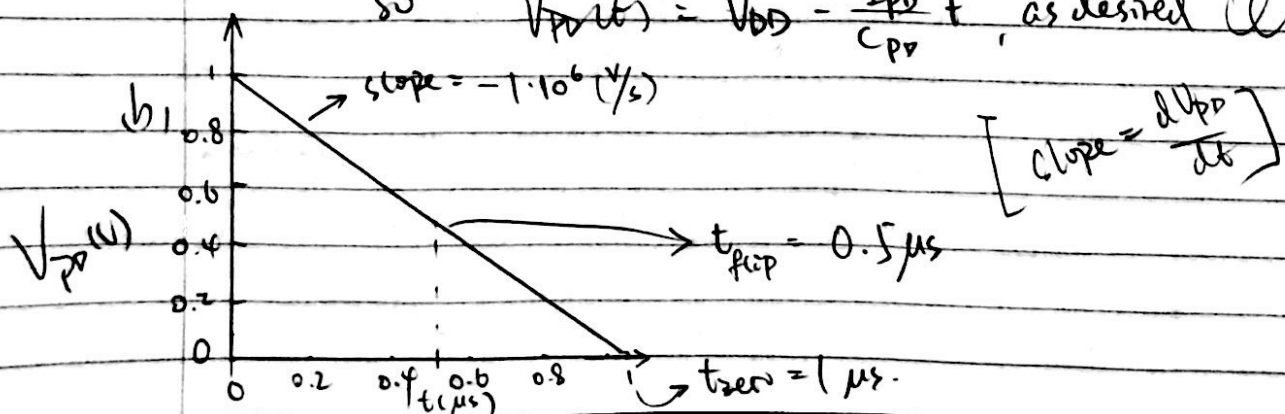 so V_PD(t) = V_DD - I_PD/C_PD t, as desired
1
slope = -1·10⁶ (V/s)
b)
0.8
[slope = dV_PD/dt]
0.6
V_PD (V)
0.4
t_flip = 0.5 μs
0.2
0
0 0.2 0.4 0.6 0.8 1
t(μs)
t_zero = 1 μs.